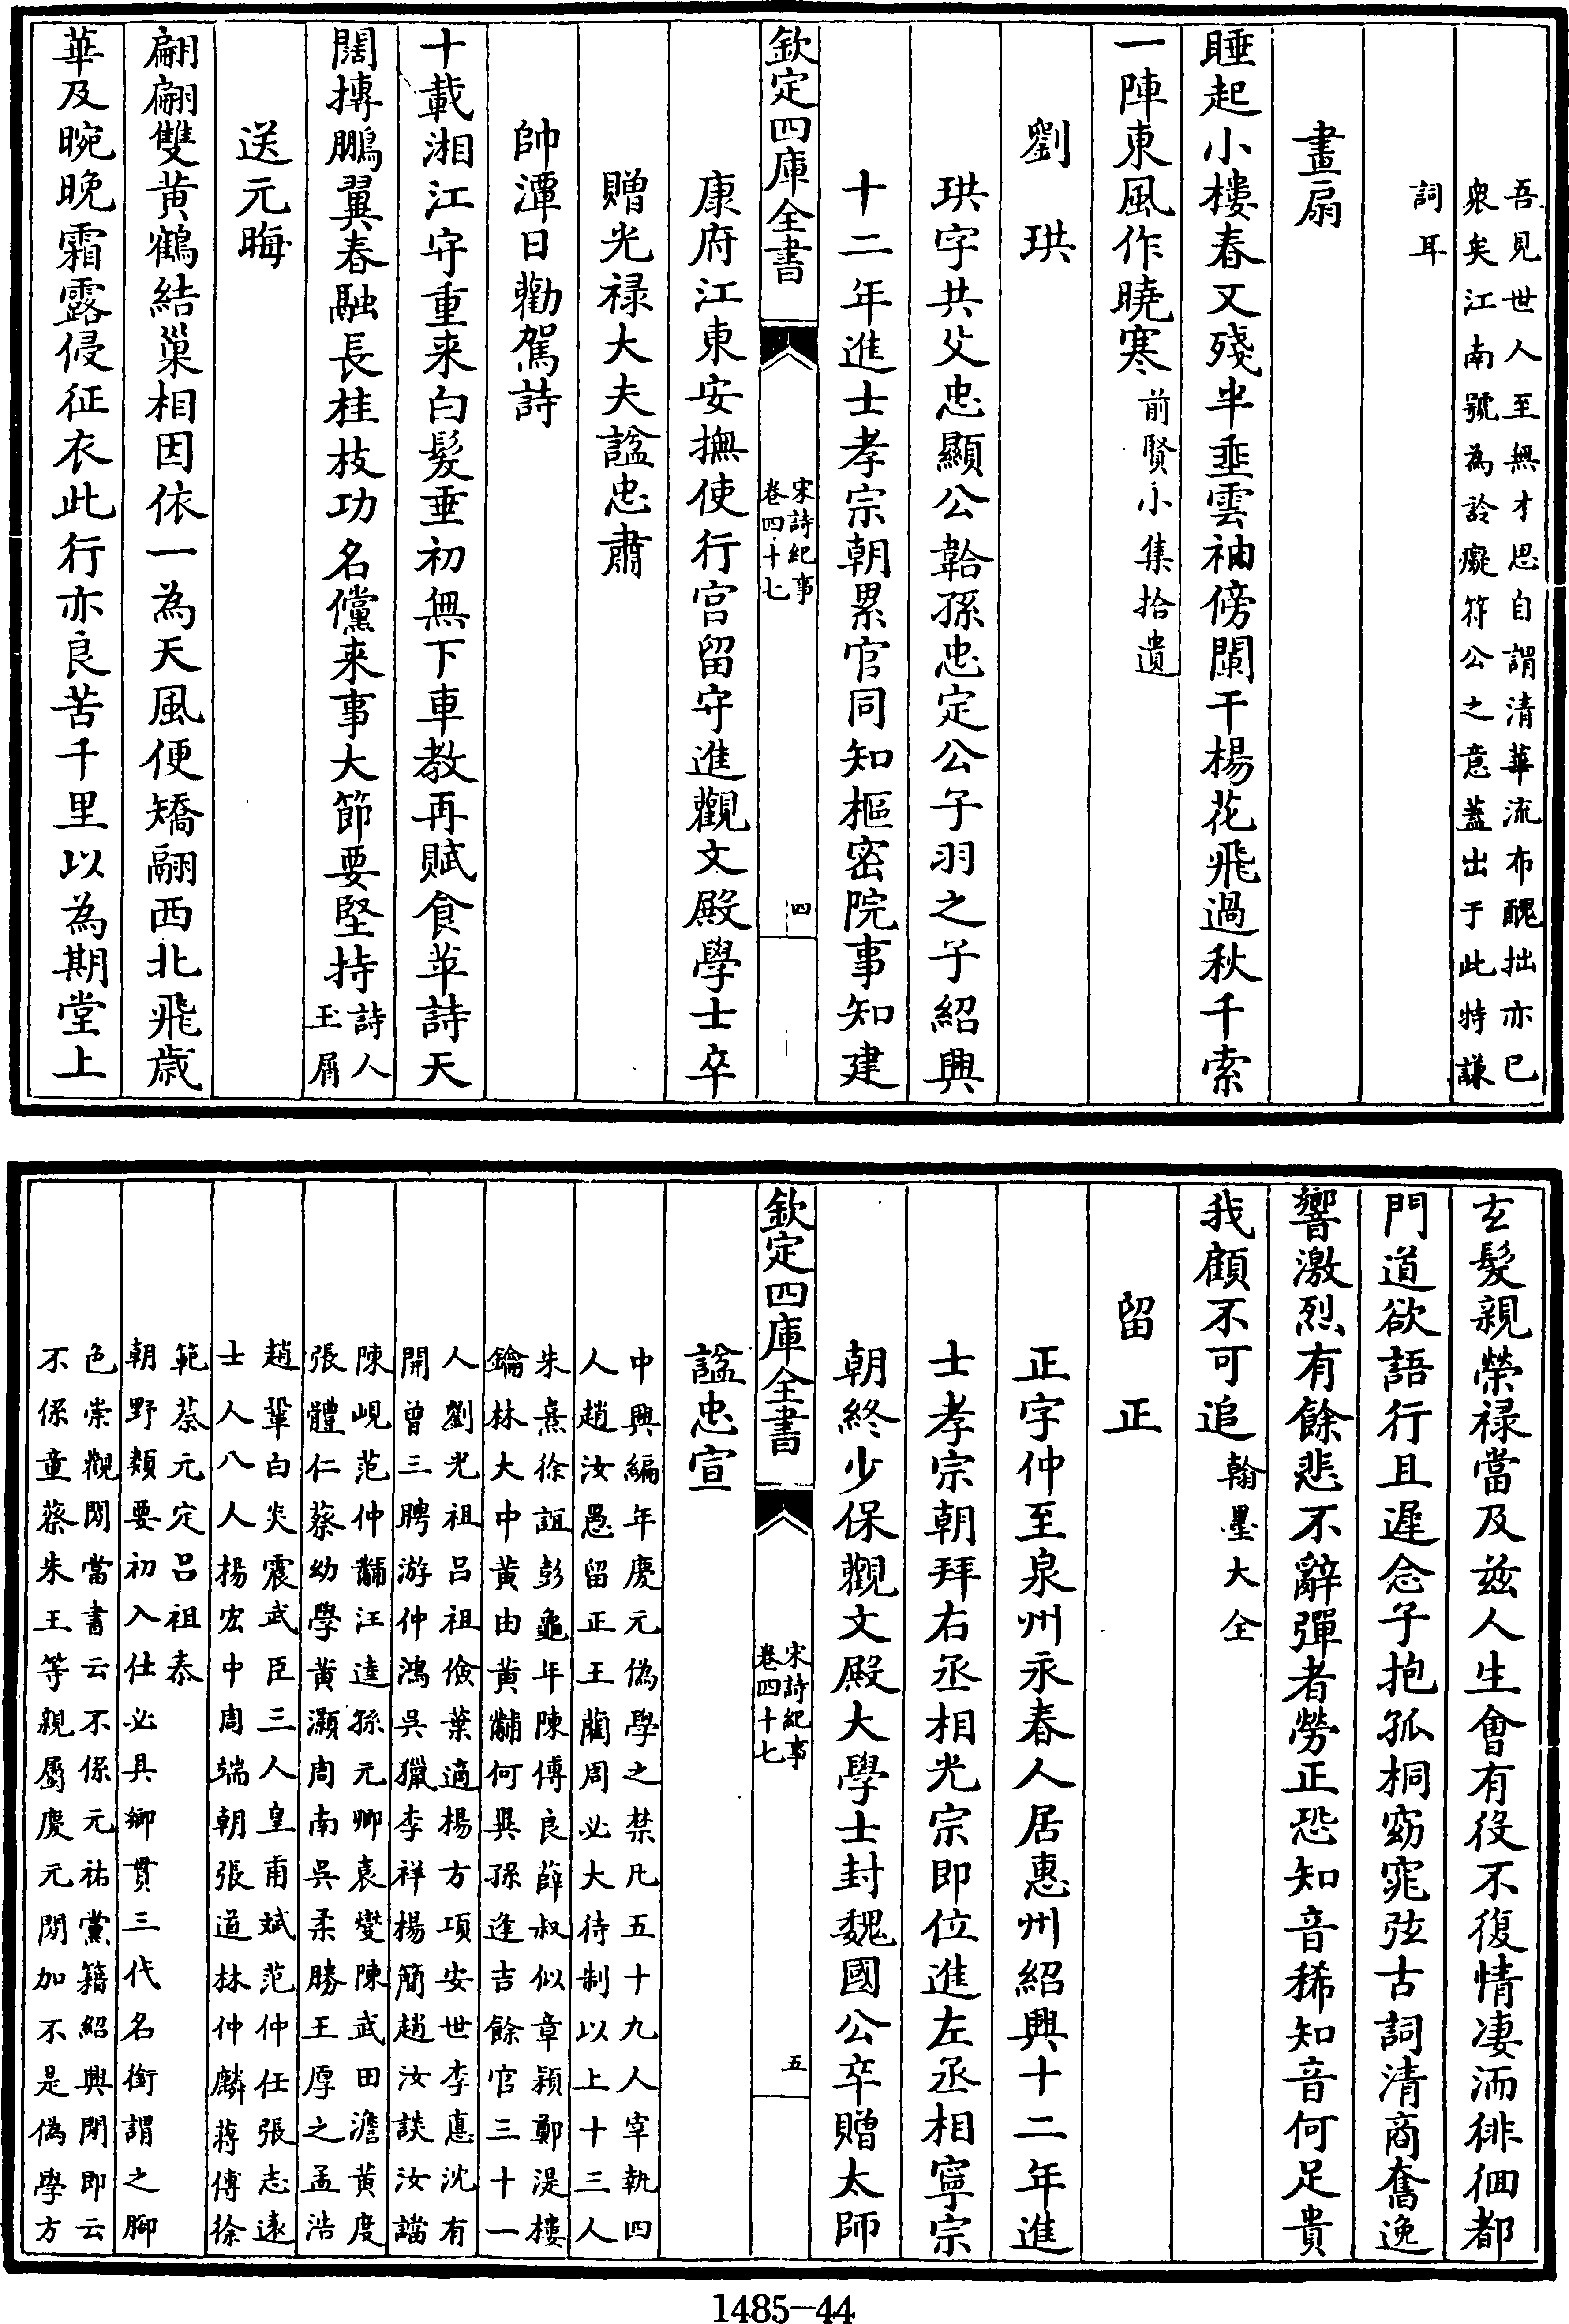 吾見世人至無才思自謂清華流布醜拙亦已
衆矣江南號為詅癡符公之意蓋出于此特謙
詞耳
畫扇
睡起小樓春又殘半垂雲袖傍闌干楊花飛過秋千索
一陣東風作曉寒前賢小集拾遺
劉珙
珙字共父忠顯公韐孫忠定公子羽之子紹興
十二年進士孝宗朝累官同知樞密院事知建
欽定四庫全書
宋詩紀事
卷四十七
四
康府江東安撫使行宫留守進觀文殿學士卒
贈光禄大夫諡忠肅
帥潭日勸駕詩
十載湘江守重来白髮垂初無下車教再賦食苹詩天
闊摶鵬翼春融長桂枝功名儻来事大節要堅持詩人
玉屑
送元晦
翩翩雙黄鶴結巢相因依一為天風便矯翮西北飛歲
華及晼晚霜露侵征衣此行亦良苦千里以為期堂上
玄髮親榮禄當及兹人生會有役不復情凄洏徘徊都
門道欲語行且遲念子抱孤桐窈窕弦古詞清商奮逸
響激烈有餘悲不辭彈者勞正恐知音稀知音何足貴
我顧不可追翰墨大全
留正
正字仲至泉州永春人居惠州紹興十二年進
士孝宗朝拜右丞相光宗即位進左丞相寧宗
朝終少保觀文殿大學士封魏國公卒贈太師
欽定四庫全書
宋詩紀事
卷四十七
五
諡忠宣
中興編年慶元偽學之禁凡五十九人宰執四
人趙汝愚留正王藺周必大待制以上十三人
朱熹徐誼彭龜年陳傅良薛叔似章頴鄭湜樓
鑰林大中黄由黄黼何異孫逢吉餘官三十一
人劉光祖吕祖儉葉適楊方項安世李㥁沈有
開曾三聘游仲鴻吳獵李祥楊簡趙汝談汝讜
陳峴范仲黼汪逵孫元卿袁燮陳武田澹黄度
張體仁蔡幼學黄灝周南吳柔勝王厚之孟浩
趙鞏白炎震武臣三人皇甫斌范仲任張志遠
士人八人楊宏中周端朝張道林仲麟蔣傅徐
範蔡元定吕祖泰
朝野類要初入仕必具鄉貫三代名銜謂之脚
色崇觀閒當書云不係元祐黨籍紹興閒即云
不係童蔡朱王等親屬慶元閒加不是偽學方
1485-44